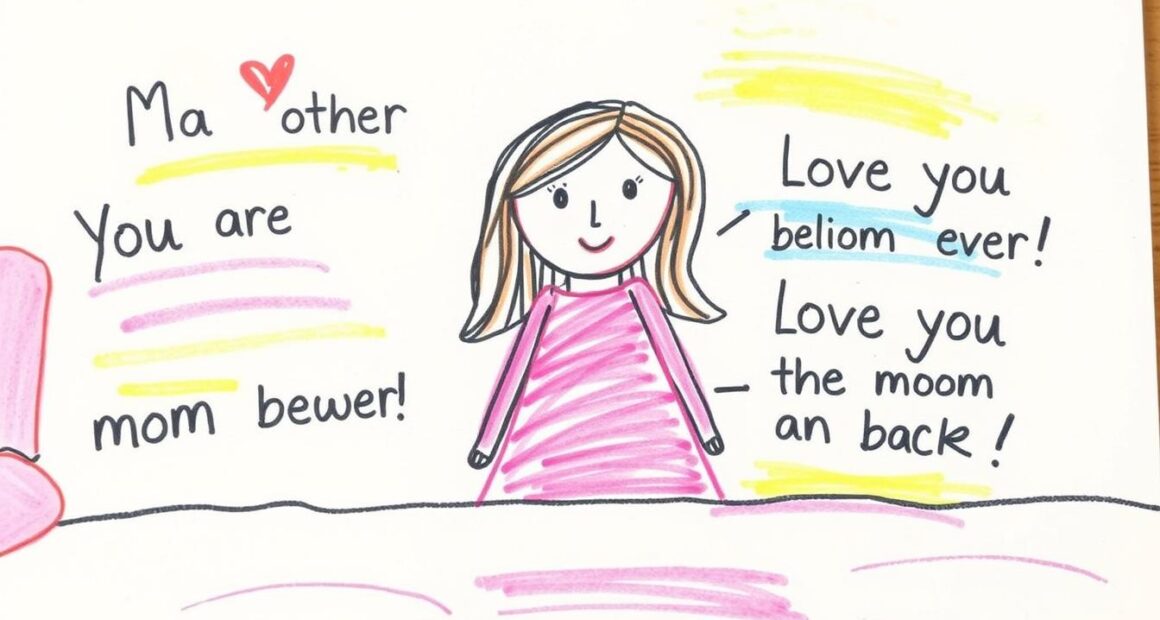 Ma other
You are
mom bewer!
Love you
beliom ever!
Love you
the moom
an back!